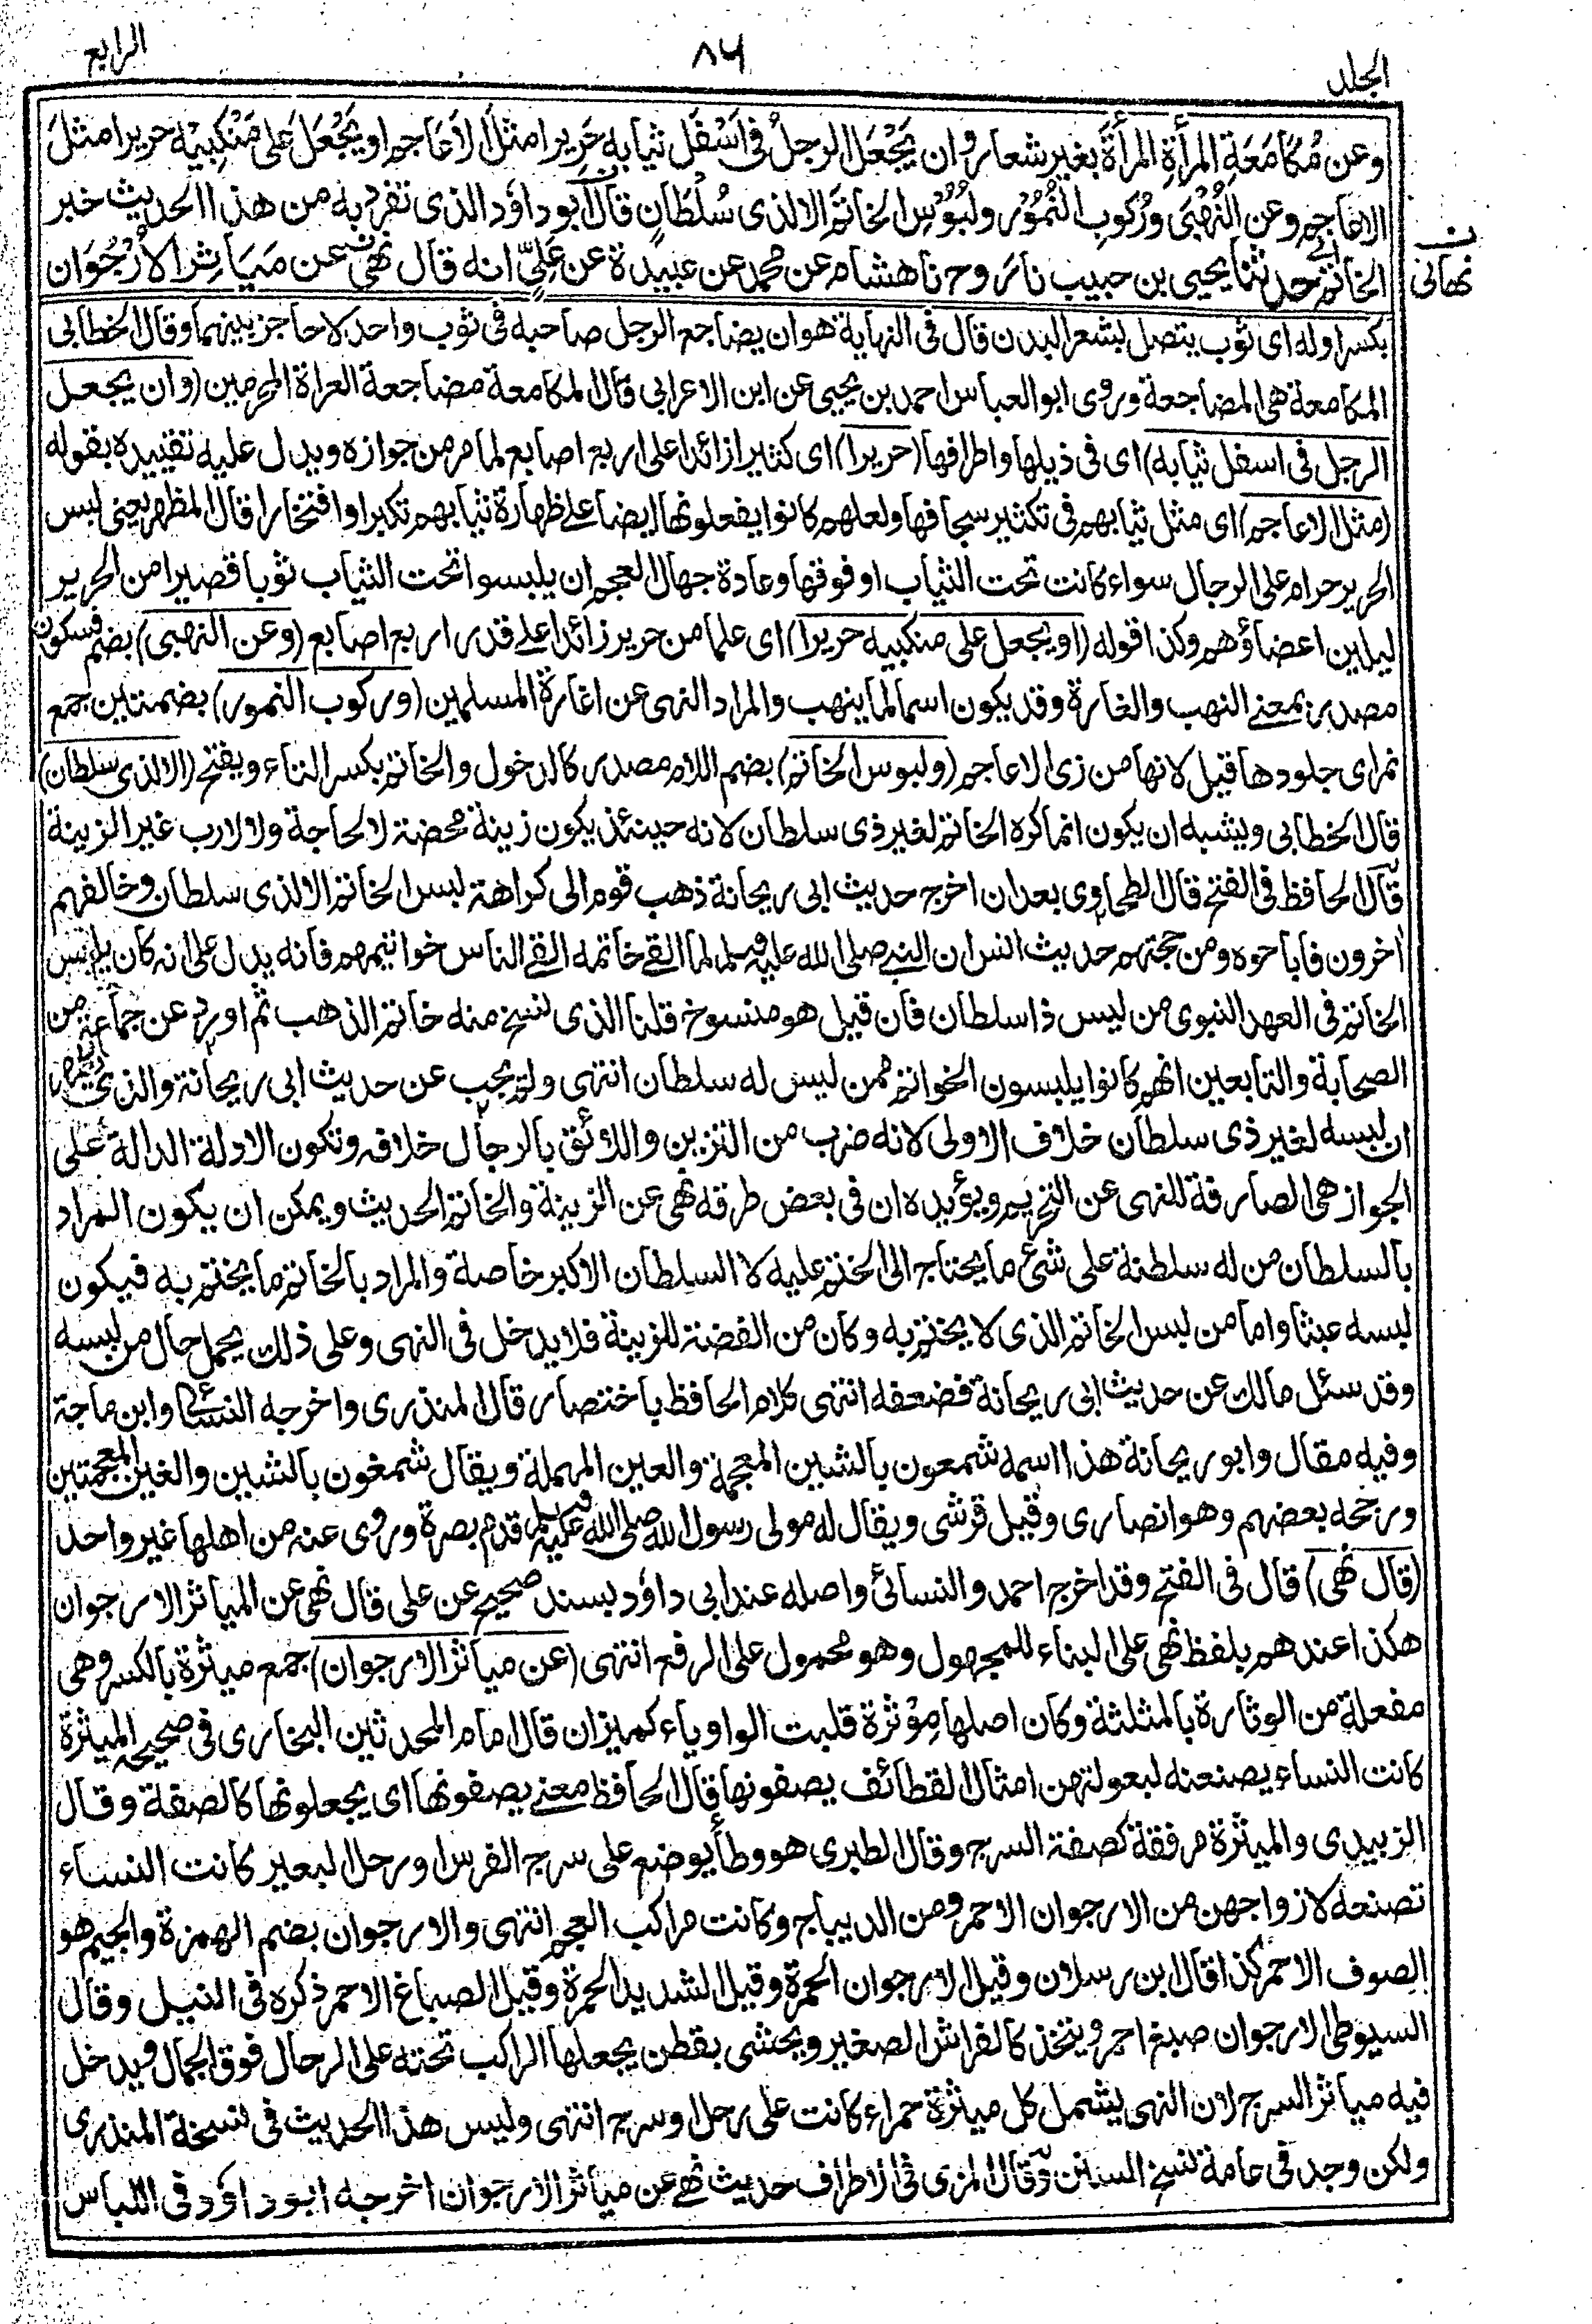 الجلد
٨٦
الرابع
وعن مُكامَعَةِ المرأةِ المرأةَ بغير شعار وان يَجْعَلَ الرجلُ فى اَسْفَل ثيابه حَرِيرا مثلَ الاَعَاجم او يَجْعَلَ على مَنْكِبيْه حريرا مثلَ
الاعاجم وعن النُهْبَى ورُكوبِ النُمُوْر ولُبُوْسِ الخاتَم الا لذى سُلْطانٍ قال ابو داؤد الذى تفرد به من هذا الحديث خبر
الخاتم حدثنا يحيى بن حبيب نا روح نا هشام عن محمد عن عبيدة عن عَلِيٍّ انه قال نهى عن مَيَاثِر الاُرْجُوَان
ن
نهانى
بكسر اوله اى ثوب يتصل بشعر البدن قال فى النهاية هو ان يضاجع الرجل صاحبه فى ثوب واحد لا حاجز بينهما وقال الخطابى
المكامعة هى المضاجعة وروى ابو العباس احمد بن يحيى عن ابن الاعرابى قال المكامعة مضاجعة العراة المحرمين (وان يجعل
الرجل فى اسفل ثيابه) اى فى ذيلها واطرافها (حريرا) اى كثيرا زائدا على اربع اصابع لما مر من جوازه ويدل عليه تقييده بقوله
(مثل الاعاجم) اى مثل ثيابهم فى تكثير سجافها ولعلهم كانوا يفعلونها ايضا على ظهارة ثيابهم تكبرا وافتخارا قال المظهر يعنى لبس
الحرير حرام على الرجال سواء كانت تحت الثياب او فوقها وعادة جهال العجم ان يلبسوا تحت الثياب ثوبا قصيرا من الحرير
ليلين اعضاؤهم وكذا قوله (او يجعل على منكبيه حريرا) اى علما من حرير زائدا على قدر اربع اصابع (وعن النهبى) بضم فسكون
مصدر بمعنى النهب والغارة وقد يكون اسما لما ينهب والمراد النهى عن اغارة المسلمين (وركوب النمور) بضمتين جمع
نمر اى جلودها قيل لانها من زى الاعاجم (ولبوس الخاتم) بضم اللام مصدر كالدخول والخاتم بكسر التاء ويفتح (الا لذى سلطان)
قال الخطابى ويشبه ان يكون انما كره الخاتم لغير ذى سلطان لانه حينئذ يكون زينة محضة لا لحاجة ولا لارب غير الزينة
قال الحافظ فى الفتح قال الطحاوى بعد ان اخرج حديث ابى ريحانة ذهب قوم الى كراهة لبس الخاتم الا لذى سلطان وخالفهم
اخرون فاباحوه ومن حجتهم حديث انس ان النبى صلى الله عليه وسلم لما القى خاتمه القى الناس خواتيمهم فانه يدل على انه كان يلبس
الخاتم فى العهد النبوى من ليس ذا سلطان فان قيل هو منسوخ قلنا الذى نسخ منه خاتم الذهب ثم اورد عن جماعة من
الصحابة والتابعين انهم كانوا يلبسون الخواتم ممن ليس له سلطان انتهى ولم يجب عن حديث ابى ريحانة والذى يظهر
ان لبسه لغير ذى سلطان خلاف الاولى لانه ضرب من التزين واللائق بالرجال خلافه وتكون الادلة الدالة على
الجواز هى الصارفة للنهى عن التحريم ويؤيده ان فى بعض طرقه نهى عن الزينة والخاتم الحديث ويمكن ان يكون المراد
بالسلطان من له سلطنة على شئ ما يحتاج الى الختم عليه لا السلطان الاكبر خاصة والمراد بالخاتم ما يختم به فيكون
لبسه عبثا واما من لبس الخاتم الذى لا يختم به وكان من الفضة للزينة فلا يدخل فى النهى وعلى ذلك يحمل حال من لبسه
وقد سئل مالك عن حديث ابى ريحانة فضعفه انتهى كلام الحافظ باختصار قال المنذرى واخرجه النسائى وابن ماجة
وفيه مقال وابو ريحانة هذا اسمه شمعون بالشين المعجمة والعين المهملة ويقال شمغون بالشين والغين المعجمتين
ورجحه بعضهم وهو انصارى وقيل قرشى ويقال له مولى رسول الله صلى الله عليه وسلم قدم بصرة وروى عنه من اهلها غير واحد
(قال نهى) قال فى الفتح وقد اخرج احمد والنسائى واصله عند ابى داؤد بسند صحيح عن على قال نهى عن المياثر الارجوان
هكذا عندهم بلفظ نهى على البناء للمجهول وهو محمول على الرفع انتهى (عن مياثر الارجوان) جمع ميثرة بالكسر وهى
مفعلة من الوثارة بالمثلثة وكان اصلها مِوْثرة قلبت الواو ياء كميزان قال امام المحدثين البخارى فى صحيحه الميثرة
كانت النساء يصنعنه لبعولتهن امثال القطائف يصفونها قال الحافظ معنى يصفونها اى يجعلونها كالصفة وقال
الزبيدى والميثرة مرفقة كصفة السرج وقال الطبرى هو وطأ يوضع على سرج الفرس او رحل البعير كانت النساء
تصنعه لازواجهن من الارجوان الاحمر ومن الديباج وكانت مراكب العجم انتهى والارجوان بضم الهمزة والجيم هو
الصوف الاحمر كذا قال ابن رسلان وقيل الارجوان الحمرة وقيل الشديد الحمرة وقيل الصباغ الاحمر ذكره فى النيل وقال
السيوطى الارجوان صبغ احمر ويتخذ كالفراش الصغير ويحشى بقطن يجعلها الراكب تحته على الرحال فوق الجمال ويدخل
فيه مياثر السرج لان النهى يشمل كل ميثرة حمراء كانت على رحل او سرج انتهى وليس هذا الحديث فى نسخة المنذرى
ولكن وجد فى عامة نسخ السنن وقال المزى فى الاطراف حديث نهى عن مياثر الارجوان اخرجه ابو داؤد فى اللباس